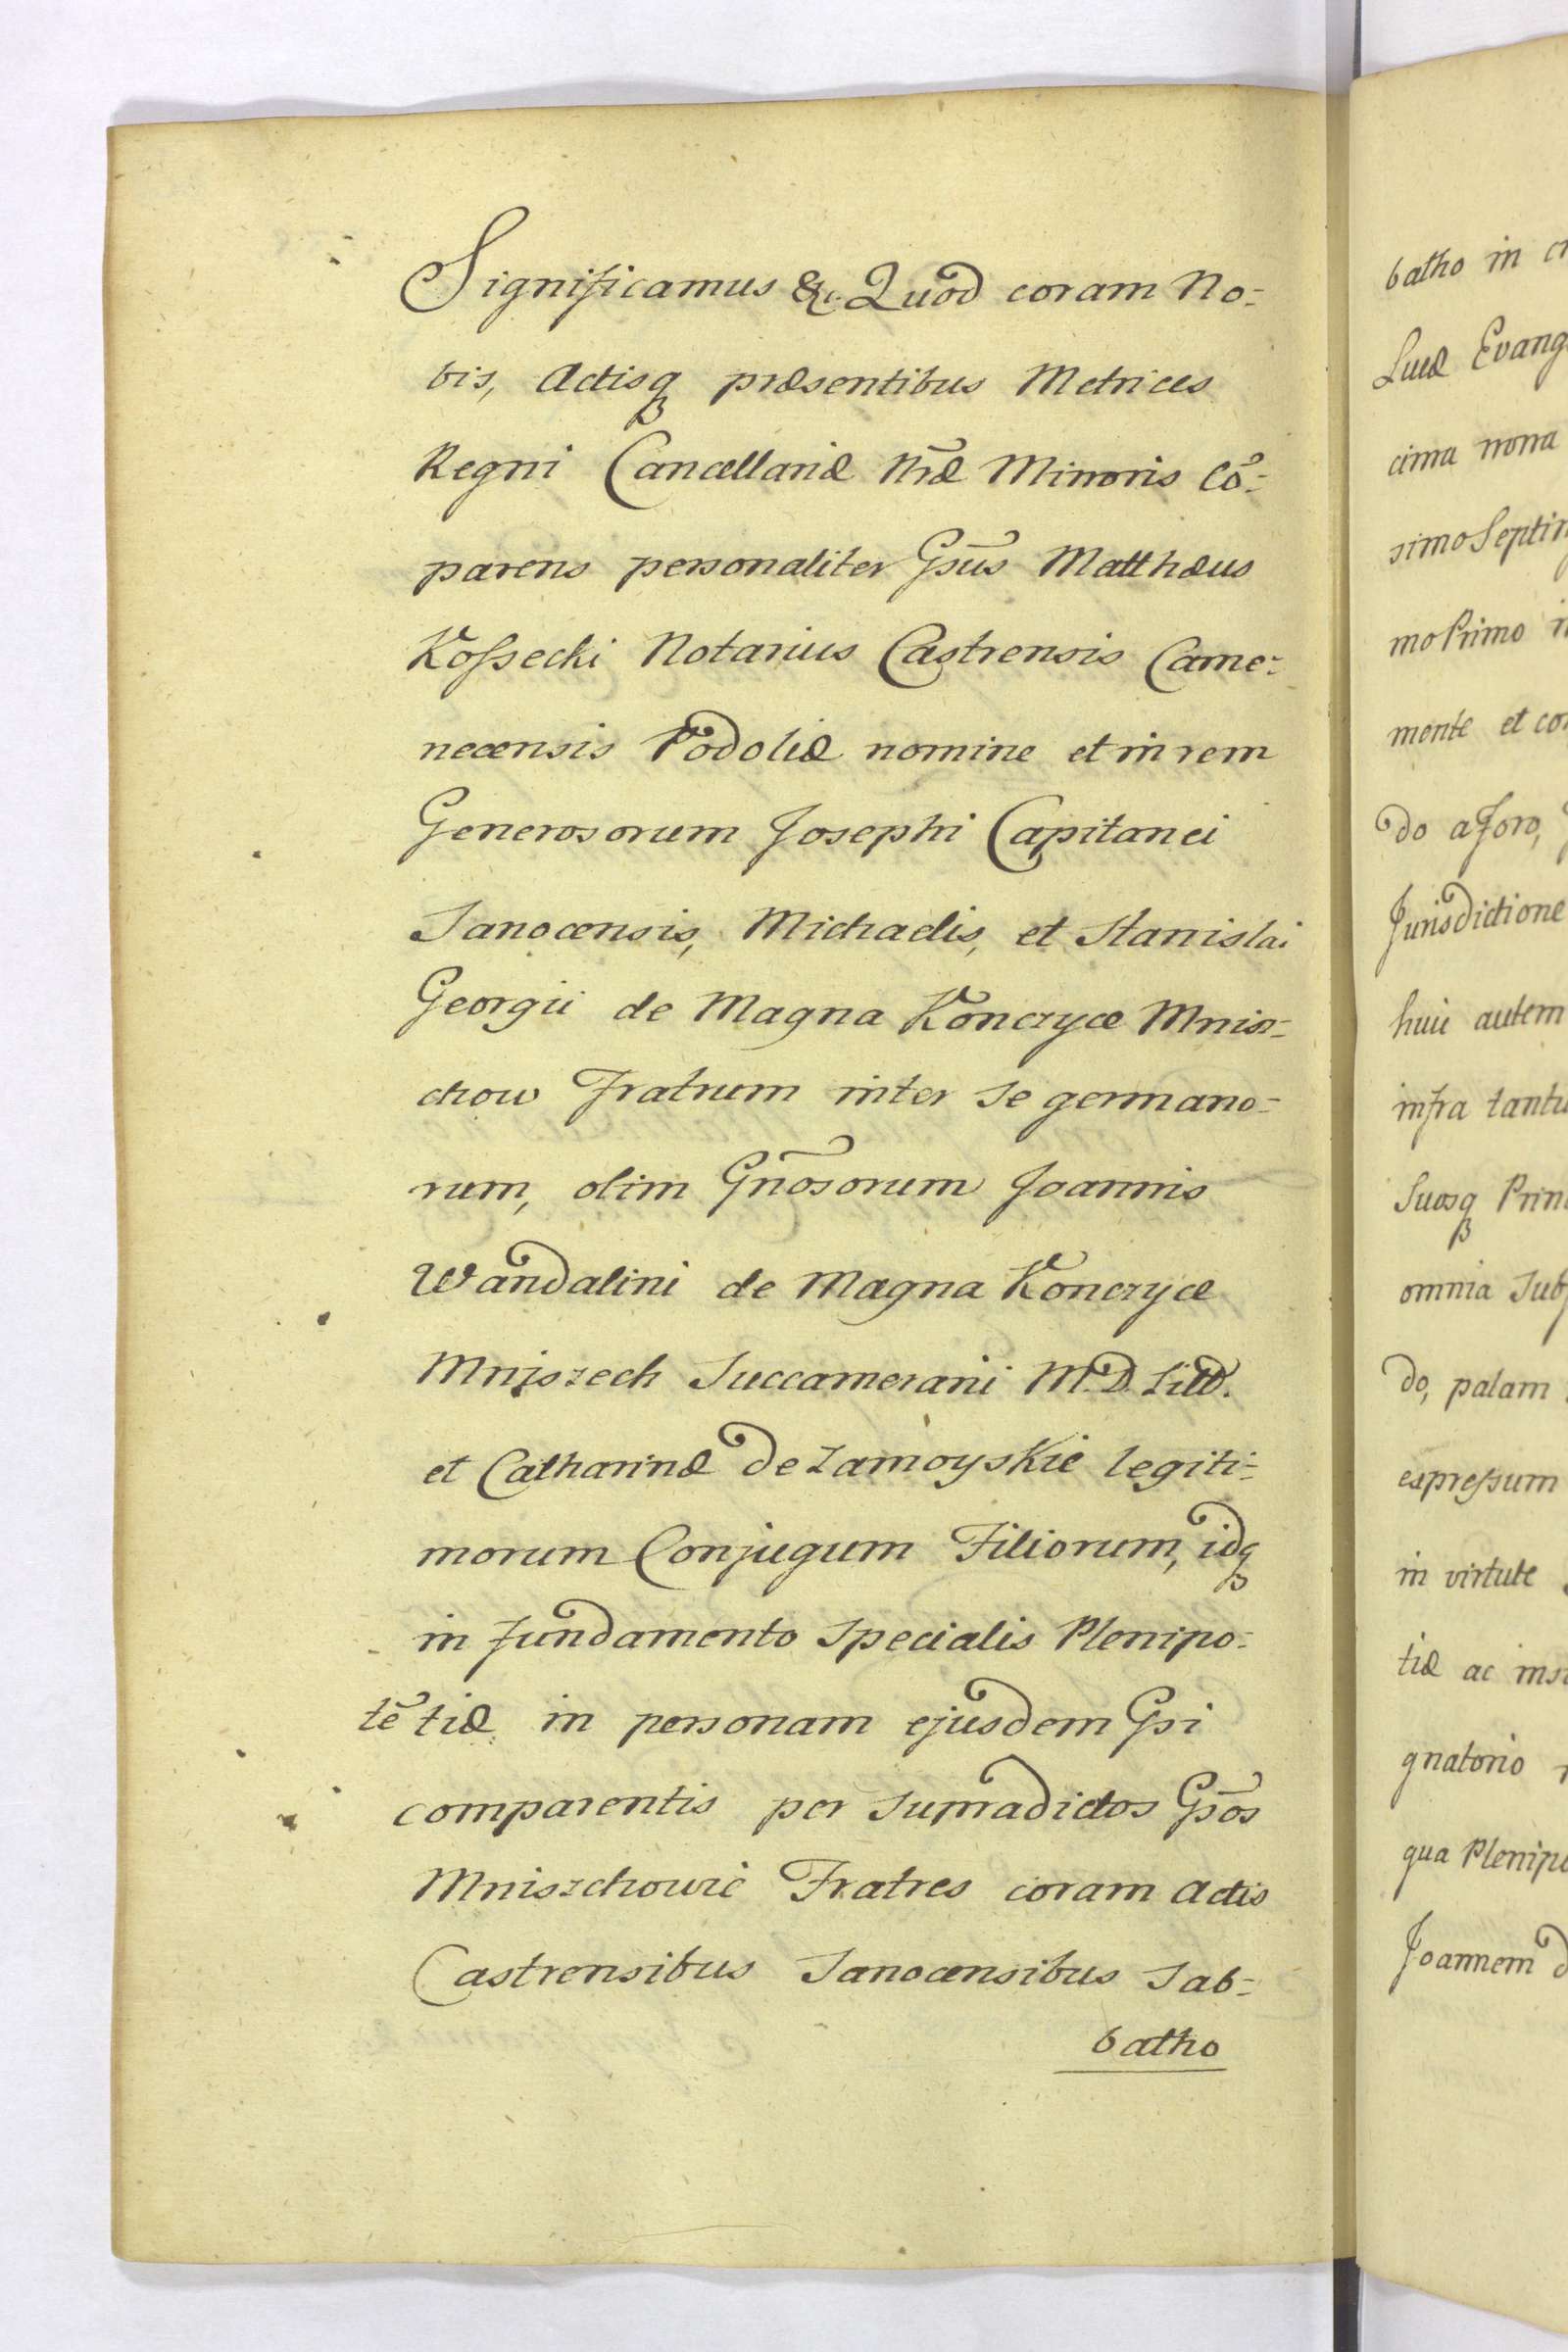 Significamus &c. Quod coram No-
bis, Actisq́ præsentibus Metrices
Regni Cancellariæ Nrãæ Minoris Cõ-
parens personaliter Gsũs Matthæus
Kossecki Notarius Castrensis Came-
necensis Podoliæ nomine et in rem
Generosorum Josephi Capitanei
Sanocensis, Michaelis, et Stanislai
Georgii de Magna Konczyce Mnisz-
chow Fratrum inter se germano-
rum, olim Gnõsorum Joannis
Wandalini de Magna Konczyce
Mniszech Succamerarii M.D. Litt.
et Catharinæ de Zamoyskie legiti-
morum Conjugum Filiorum, idq́
in fundamento specialis Plenipo-
tẽtiæ in personam ejusdem Gsi
comparentis per supradictos Gsõs
Mniszchowie Fratres coram Actis
Castrensibus Sanocensibus Sab-
batho
batho in
Lucæ Evang
cima nona
simo Septin
mo Primo
mente et
do a foro,
Jurisdictione
huic autem
infra tantu
Suosq́ Prin
omnia Sub
do, palam
expressum
in virtute
tiæ ac
gnatorio
qua Plenipo
Joannem